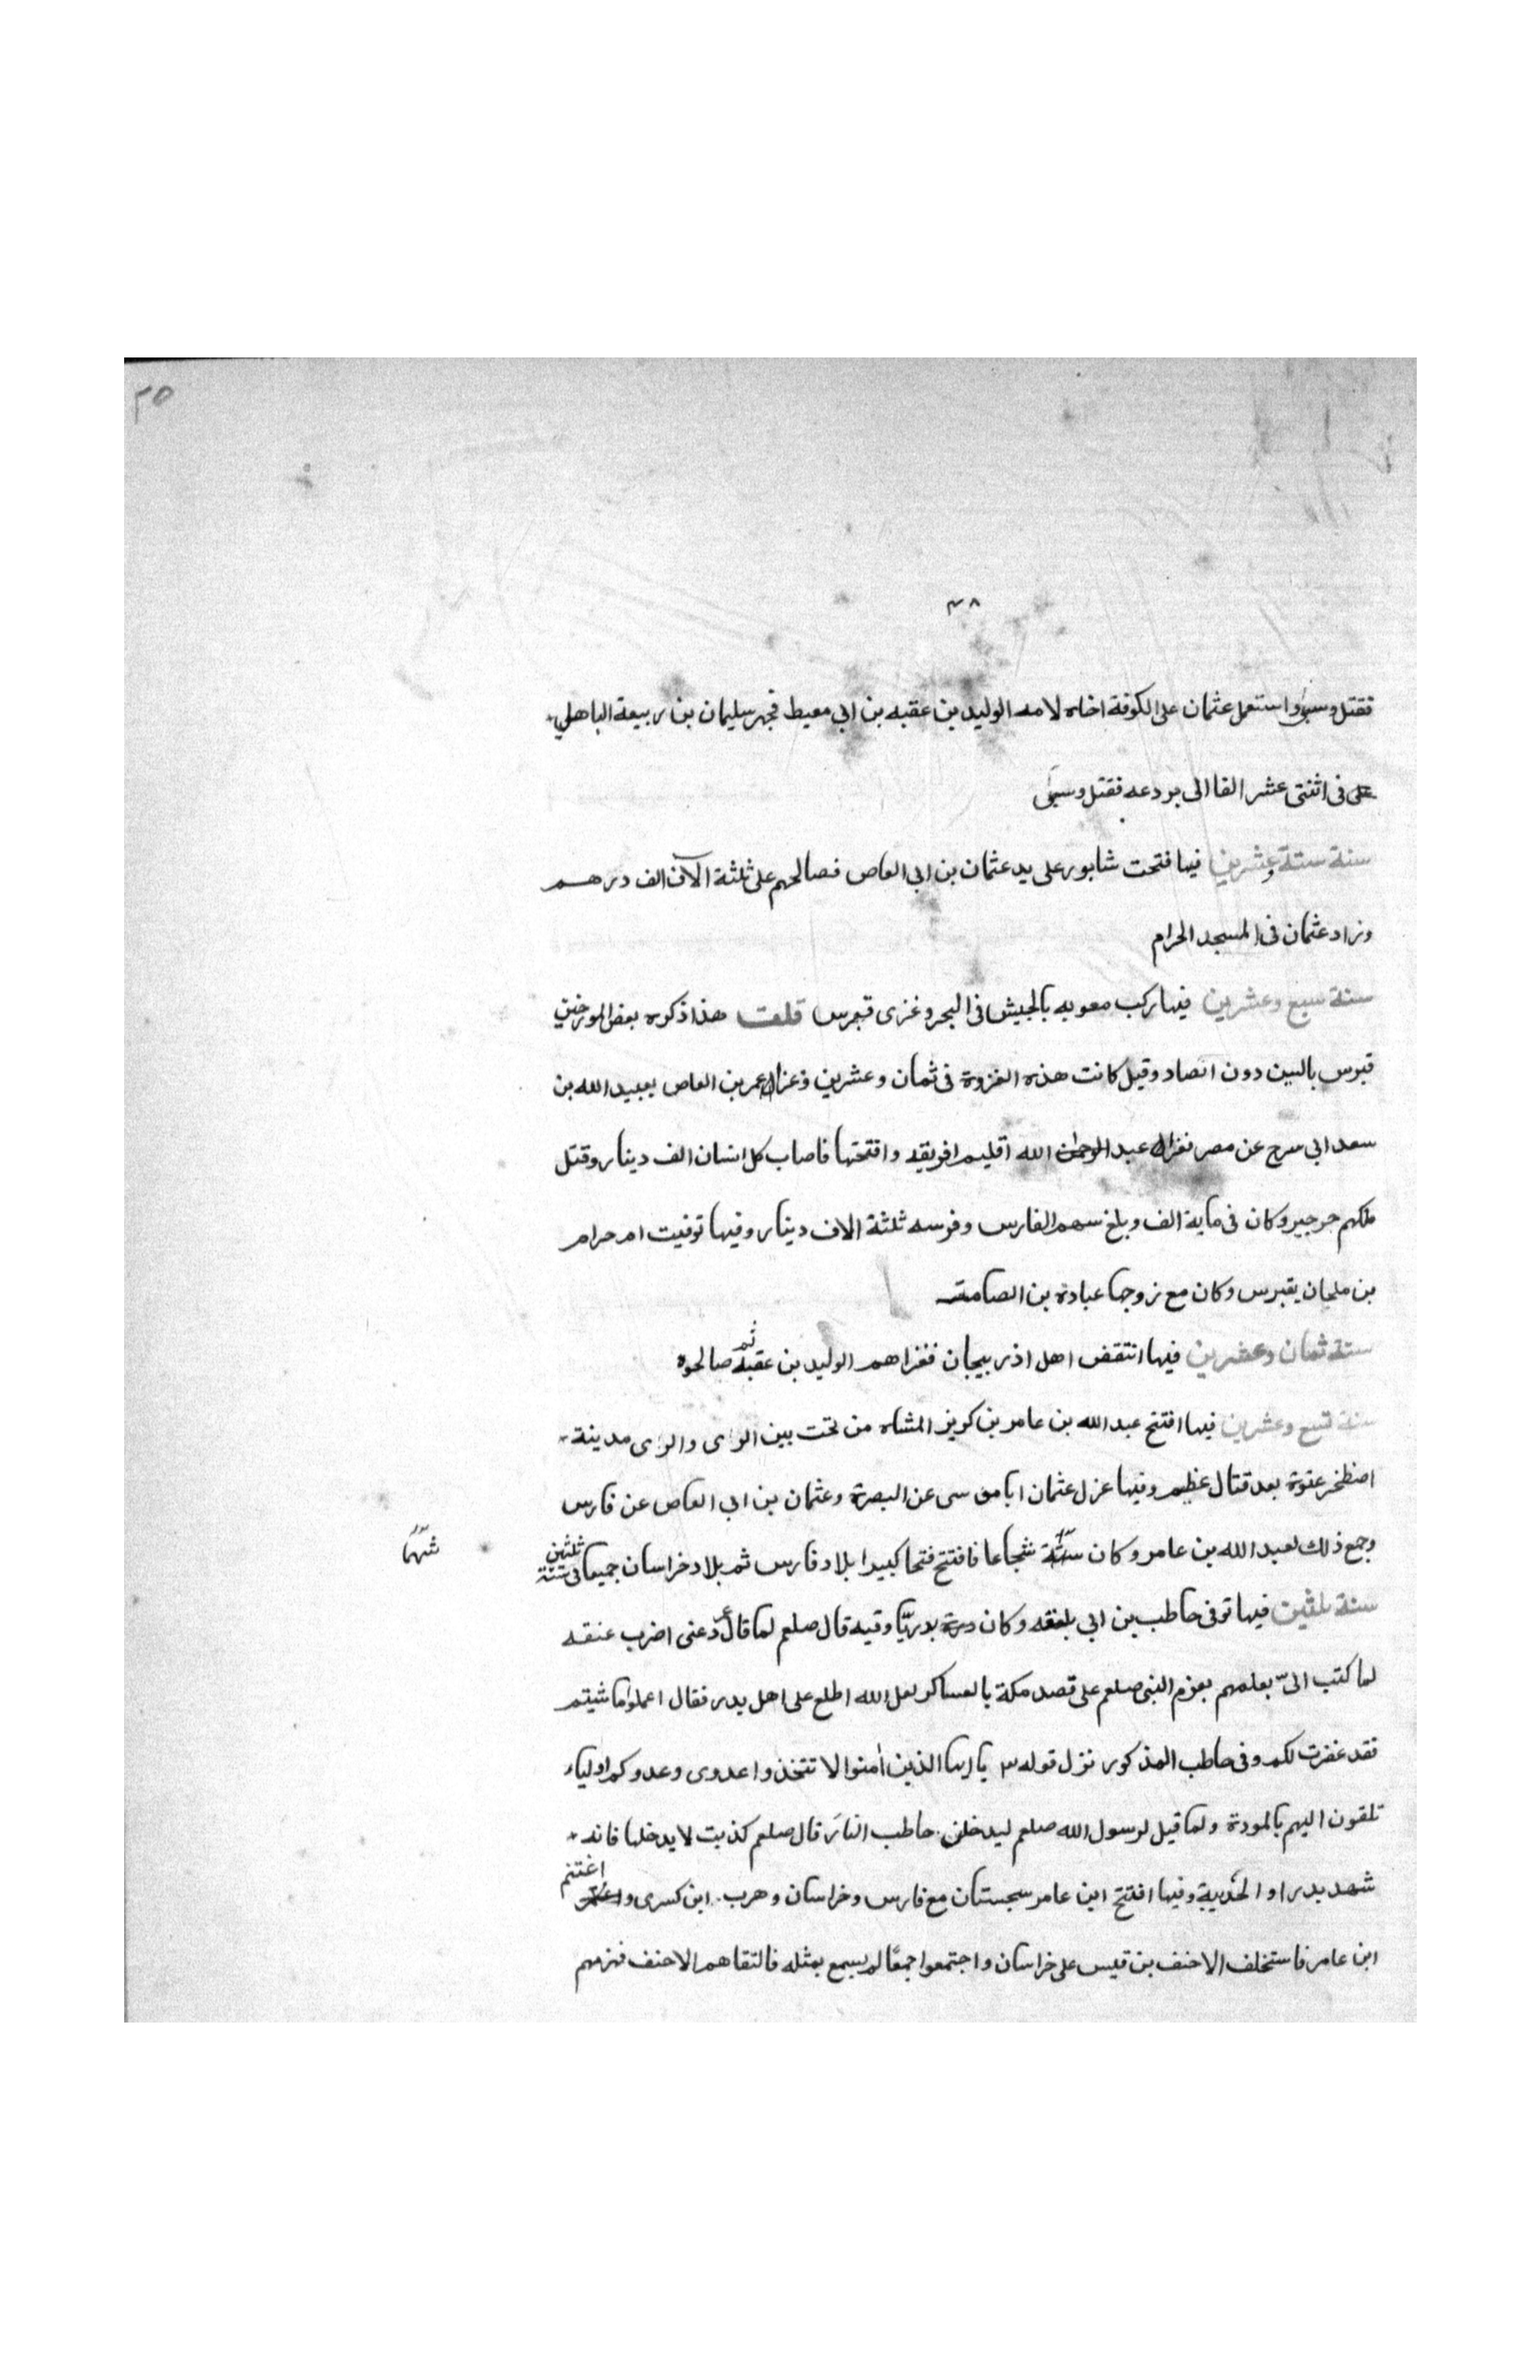 ٣٥
٣٨
فقتل وسبى واستعمل عثمان على الكوفة اخاه لامه الوليد بن عقبه بن ابي معيط فجهز سليمان بن ربيعة الباهلي
على فى اثنتى عشر الفا الى بردعه فقتل وسبى
سنة ستة وعشرين فيها فتحت شابور على يد عثمان بن ابى العاص فصالحهم على ثلثة آلاف الف درهم
وزاد عثمان فى المسجد الحرام
سنة سبع وعشرين فيها ركب معويه بالجيش فى البحر وغزى قبرس قلت هذا ذكره بعض المورخين
قبرس بالسين دون الصاد وقيل كانت هذه الغزوة فى ثمان وعشرين وعزل عمر بن العاص بعبيد الله بن
سعد ابى سرج عن مصر فغزا عبد الرحمن الله اقليم افريقيه وافتتحها فاصاب كل انسان الف دينار وقتل
ملكهم جرجير وكان فى ماية الف وبلغ سهم الفارس وفرسه ثلثة الاف دينار وفيها توفيت ام حرام
بن ملحان بقبرس وكان مع زوجها عبادة بن الصامت
سنة ثمان وعشرين فيها انتقض اهل اذربيجان فغزاهم الوليد بن عقبة ثم صالحوه
سنة تسع وعشرين فيها افتتح عبد الله بن عامر بن كريز المشاه من تحت بين الراى والراى مدينة
اصطخر عنوة بعد قتال عظيم وفيها عزل عثمان ابا موسى عن البصرة وعثمان بن ابى العاص عن فارس
وجمع ذلك لعبد الله بن عامر وكان شجاعا فافتتح فتحا كبيرا بلاد فارس ثم بلاد خراسان جميعا فى سنة ثلثين
شهما
سنة ثلثين فيها توفى حاطب بن ابي بلتعه وكان بدريّا وفيه قال صلعم لما قال عمر دعنى اضرب عنقه
لما كتب الى بعلمهم بعزم النبى صلعم على قصد مكة بالعساكر لعل الله اطلع على اهل بدر فقال اعملوا ما شيتم
فقد غفرت لكم وفى حاطب المذكور نزل قوله يا ايها الذين امنوا لا تتخذوا عدوى وعدوكم اولياء
تلقون اليهم بالمودة ولما قيل لرسول الله صلعم ليدخلن حاطب النار قال صلعم كذبت لا يدخلها فانه
شهد بدرا و الحديبية وفيها افتتح ابن عامر سجستان مع فارس وخراسان وهرب ابن كسرى و اغتنم
ابن عامر فاستخلف الاحنف بن قيس على خراسان واجتمعوا جمعًا لم يسمع بمثله فالتقاهم الاحنف فهزمهم